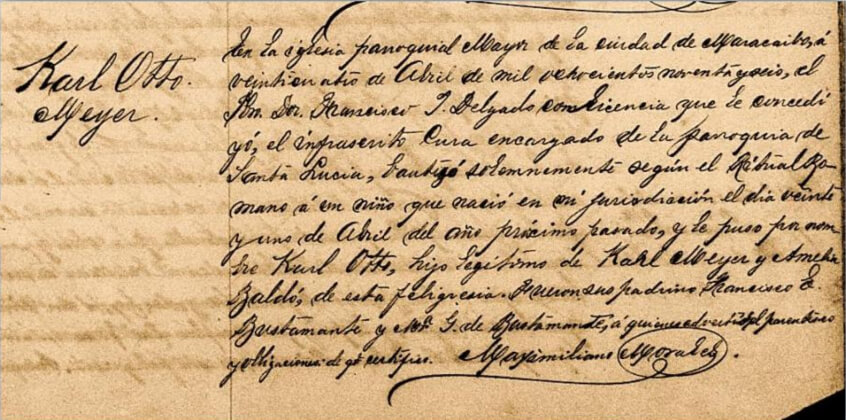 Karl Otto.
Meyer.
En la iglesia parroquial Mayor de la ciudad de Maracaibo, á
veinticuatro de Abril de mil ochocientos noventa y seis, el
Pbro. Dor. Francisco J. Delgado con licencia que le concedí
yó, el infrascrito Cura encargado de la parroquia de
Santa Lucia, bautizó solemnemente según el Ritual Ro-
mano á un niño que nació en mi jurisdicción el dia veinte
y uno de Abril del año próximo pasado, y le puso por nom
bre Karl Otto, hijo legítimo de Karl Meyer y Amelia
Baldó, de esta feligresia. Fueron sus padrinos Francisco E.
Bustamante y G. de Bustamante, á quienes advertí el parentesco
y obligaciones: de qe. certifico. Maximiliano Morales.